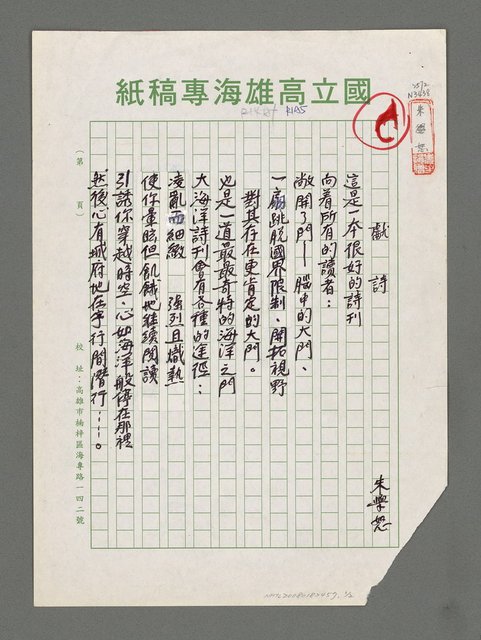 國立高雄海專稿紙
朱學恕
獻詩
朱學恕
這是一本很好的詩刊
向着所有的讀者：
敞開了門——腦中的大門、
一扇跳脫國界限制、開拓視野
對其存在更肯定的大門。
也是一道最最奇特的海洋之門
大海洋詩刊會有各種的途徑：
凌亂而細緻 強烈且熾熱
使你暈眩但飢餓地繼續閱讀
引誘你穿越時空、心如海洋般停在那裡
然後心有城府地在字行間潛行……。
（第 頁）
校址：高雄市楠梓區海專路一四二號